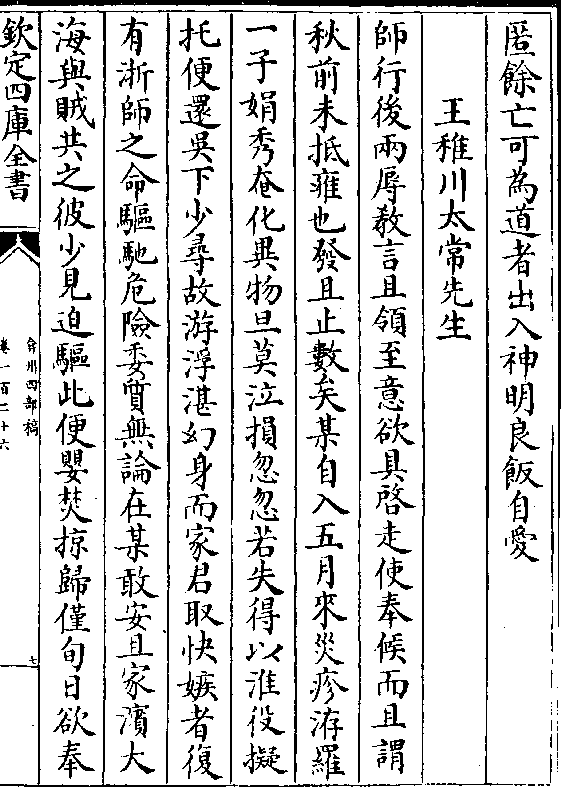 匿餘亡可為道者出入神明良飯自愛
王稚川太常先生
師行後兩辱教言且領至意欲具啓走使奉候而且謂
秋前未抵雍也發且止數矣某自入五月來災疹洊羅
一子娟秀奄化異物旦莫泣損忽忽若失得以淮役擬
托便還吳下少尋故游浮湛幻身而家君取快嫉者復
有浙師之命驅馳危險委質無論在某敢安且家濵大
海與賊共之彼少見迫驅此便嬰焚掠歸僅旬日欲奉
欽定四庫全書
弇州四部稿
卷一百二十六
七